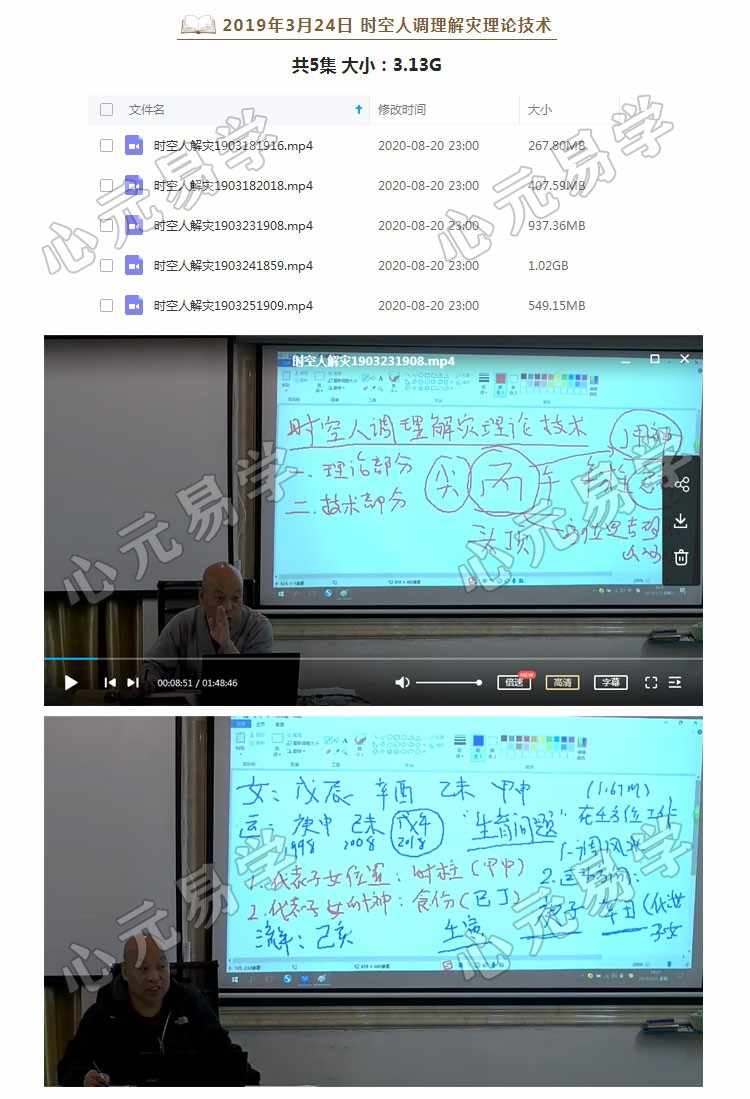 2019年3月24日 时空人调理解灾理论技术
共5集 大小：3.13G
文件名 修改时间 大小
时空人解灾1903181916.mp4 2020-08-20 23:00 267.80MB
时空人解灾1903182018.mp4 2020-08-20 23:00 407.59MB
时空人解灾1903231908.mp4 2020-08-20 23:00 937.36MB
时空人解灾1903241859.mp4 2020-08-20 23:00 1.02GB
时空人解灾1903251909.mp4 2020-08-20 23:00 549.15MB
心元易学
心元易学
时空人解灾1903231908.mp4
时空人调理解灾理论技术
一、理论部分
二、技术部分
头顶
心元易学
心元易学
00:08:51 / 01:48:46 倍速 NEW 高清 字幕
女：戊辰 辛酉 己未 甲申 (1.67m)
运：庚申 己未 戊午 "生育问题"
1998 2008 2018
1.代表子女位置：时柱（甲申）
2.代表子女时神：食伤
流年：己亥
心元易学
心元易学